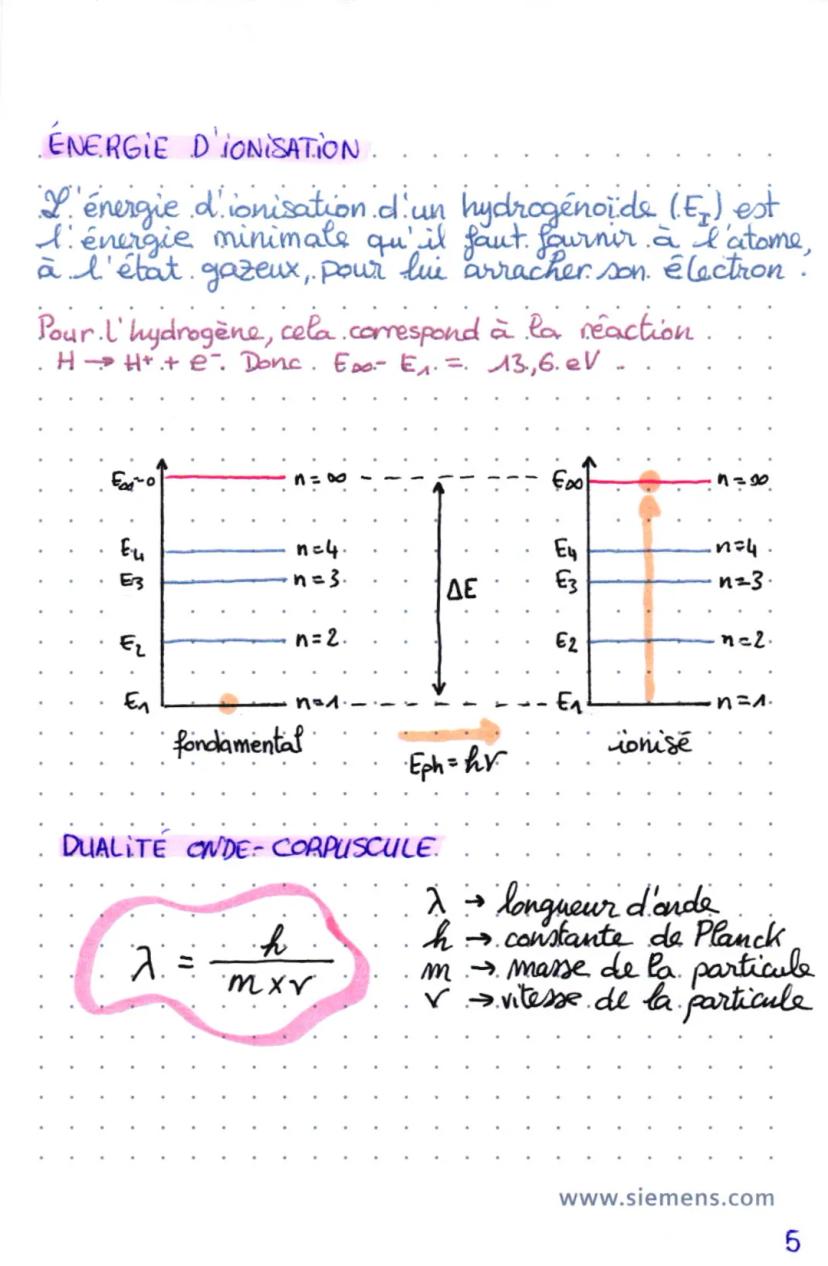 ÉNERGIE D'IONISATION
L'énergie d'ionisation d'un hydrogénoïde (E_I) est
l'énergie minimale qu'il faut fournir à l'atome,
à l'état gazeux, pour lui arracher son électron.
Pour l'hydrogène, cela correspond à la réaction
H → H+ + e-. Donc E∞ - E1 = 13,6 eV
E∞~0 n=∞ E∞ n=∞
E4 n=4 E4 n=4
E3 n=3 ΔE E3 n=3
E2 n=2 E2 n=2
E1 n=1 E1 n=1
fondamental ionisé
Eph = hν
DUALITÉ ONDE-CORPUSCULE
λ = h
m x v
λ → longueur d'onde
h → constante de Planck
m → masse de la particule
v → vitesse de la particule
www.siemens.com
5